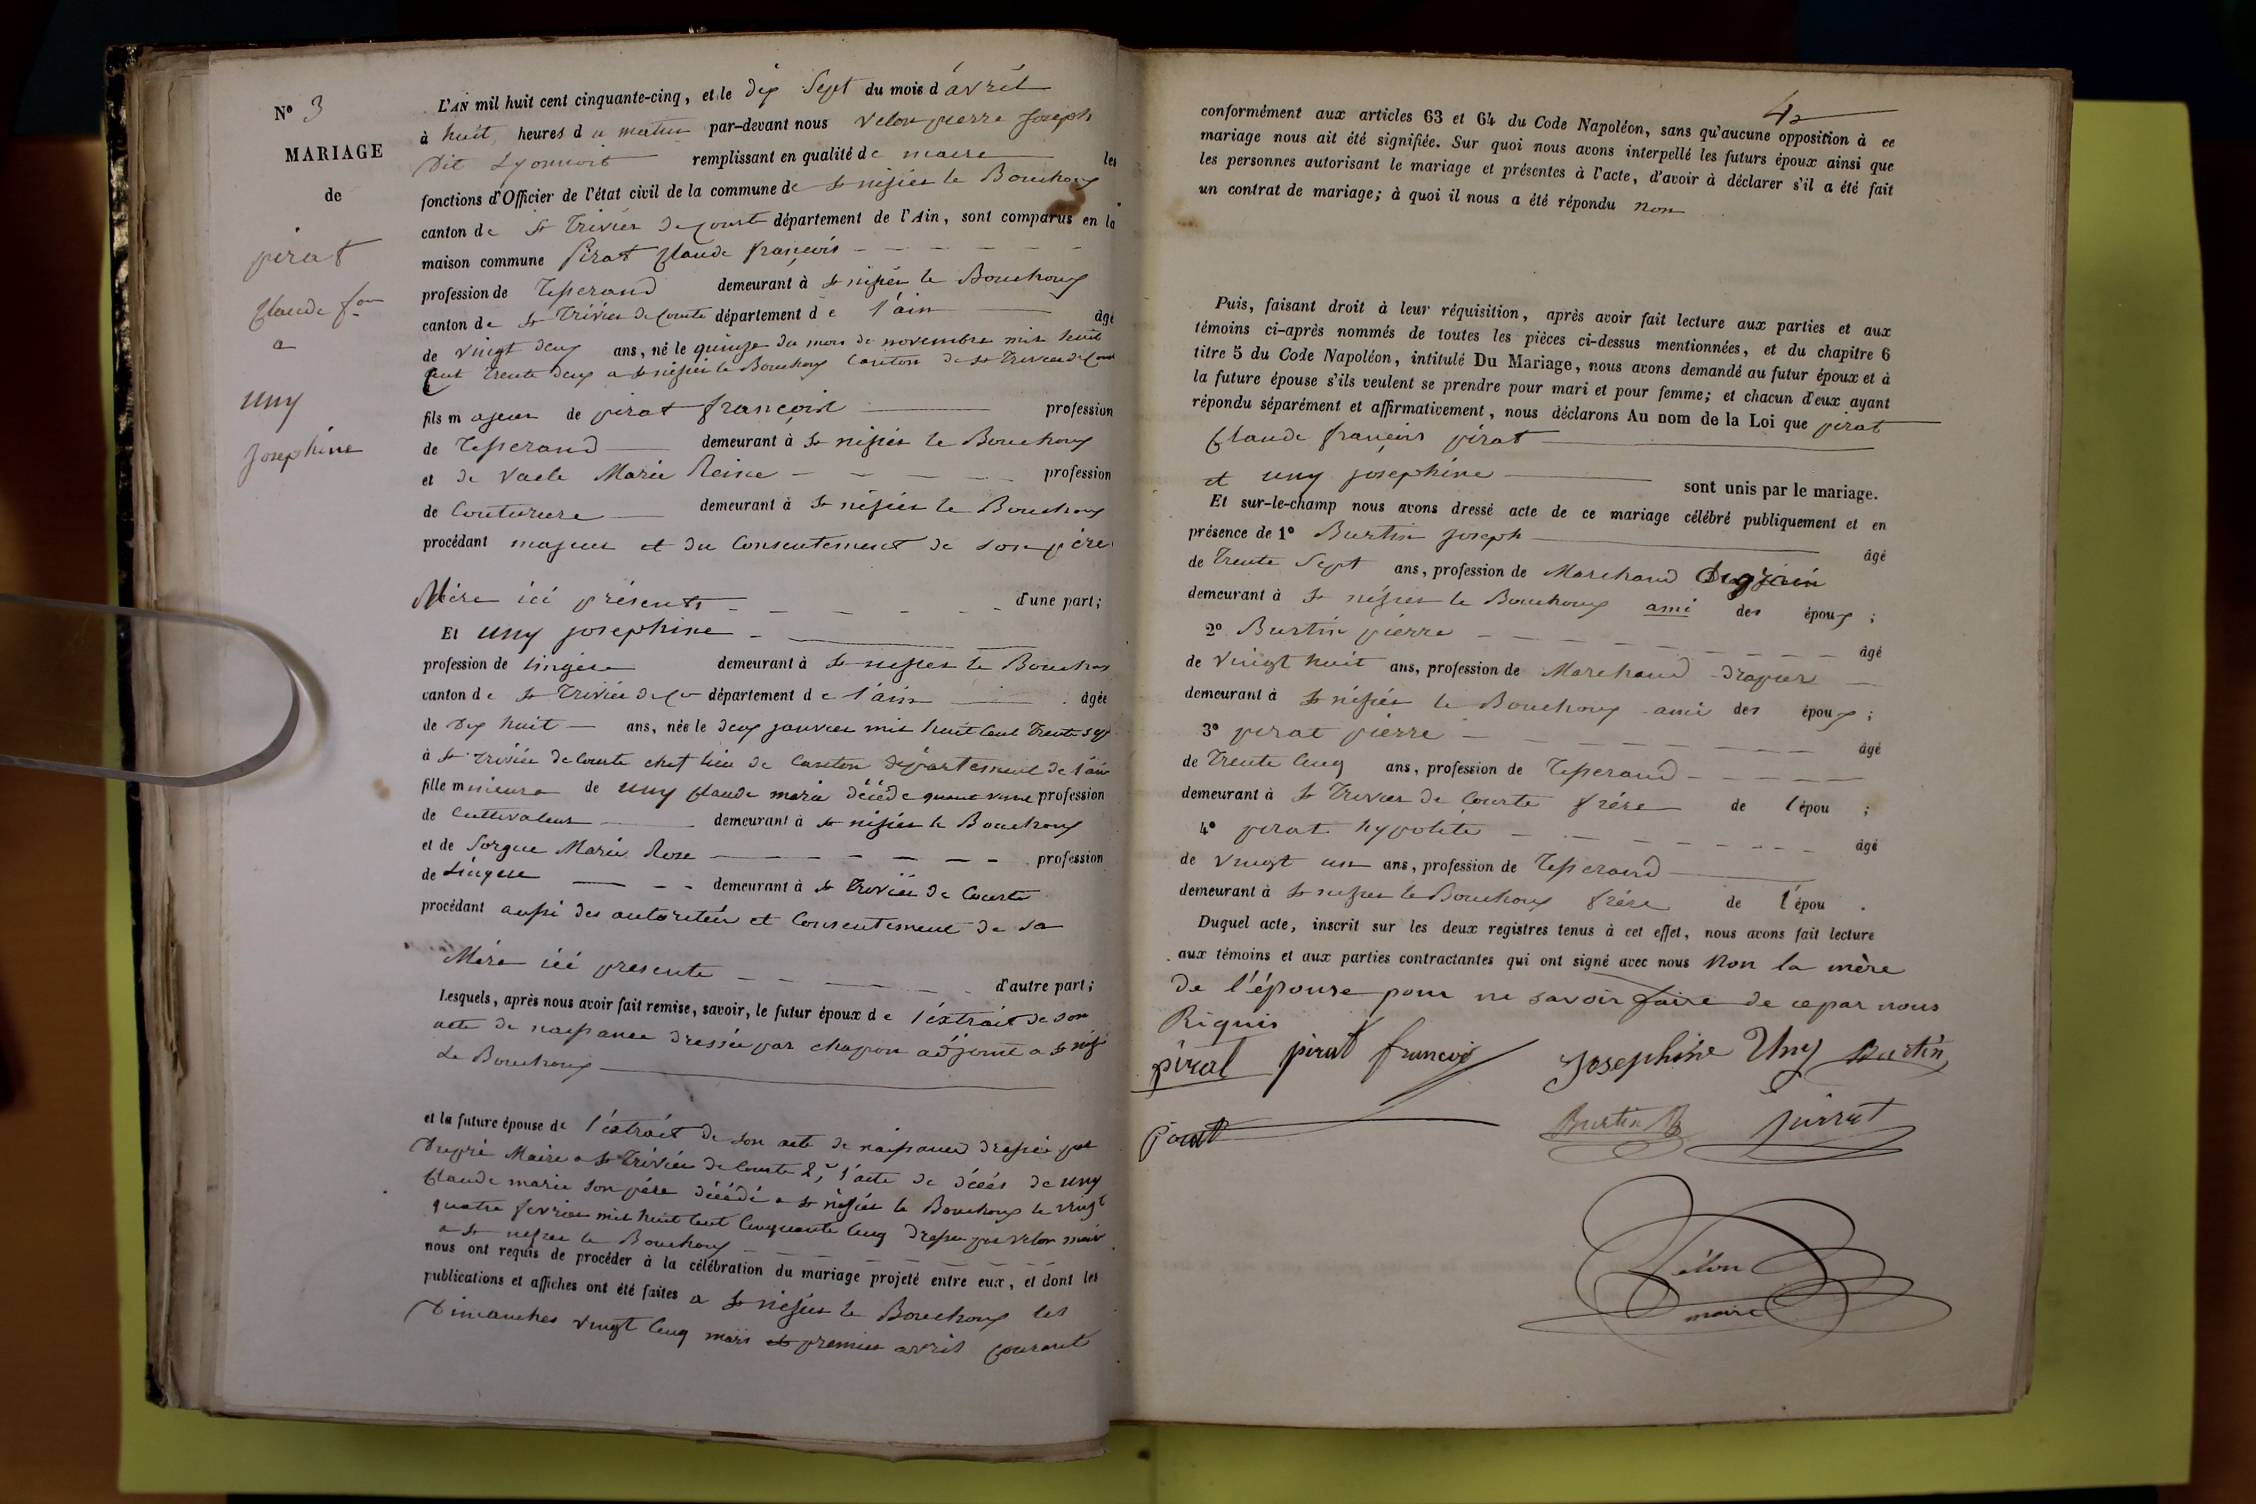 N° 3
MARIAGE
de
pirat
Claude fois
a
uny
Josephine
L'AN mil huit cent cinquante-cinq, et le dix Sept du mois d'avril
à huit heures du matin par-devant nous Velon pierre Joseph
Dit Lyonnois remplissant en qualité de maire les
fonctions d'Officier de l'état civil de la commune de St nisier le Bouchoux
canton de St Trivier de Courte département de l'Ain, sont comparus en la
maison commune Pirat Claude françois
profession de Tisserand demeurant à St nisier le Bouchoux
canton de St Trivier de Courte département de l'ain âgé
de vingt deux ans, né le quinze du mois de novembre mil huit
Cent trente deux a St nisier le Bouchoux Canton de St Trivier de Courte
fils majeur de pirat françois profession
de Tisserand demeurant à St nisier le Bouchoux
et de Vacle Marie Reine profession
de Couturiere demeurant à St nisier le Bouchoux
procédant majeur et du Consentement de son père
Mère ici présents d'une part;
Et uny josephine
profession de lingère demeurant à St nisier le Bouchoux
canton de St Trivier de Cte département de l'ain âgée
de Dix huit ans, née le deux janvier mil huit Cent Trente Sept
à St Trivier de Courte chef lieu de Canton département de l'ain
fille mineure de uny Claude marie décédé quand vivait profession
de Cultivateur demeurant à St nisier le Bouchoux
et de Sorgue Marie Rose profession
de Lingere demeurant à St Trivier de Courte
procédant aussi des autorités et Consentement de sa
Mère ici presente d'autre part;
Lesquels, après nous avoir fait remise, savoir, le futur époux de l'éxtrait de son
acte de naissance dressé par chapon adjoint a St nisier
Le Bouchoux
et la future épouse de l'éxtrait de son acte de naissance dressé par
Dupré Maire a St Trivier de Courte 2°, l'acte de décés de uny
Claude marie son père décédé a St nisier le Bouchoux le vingt
quatre fevrier mil huit Cent Cinquante Cinq dressé par Velon maire
a St nisier le Bouchoux
nous ont requis de procéder à la célébration du mariage projeté entre eux, et dont les
publications et affiches ont été faites a St nisier le Bouchoux les
Dimanches vingt Cinq mars et premier avril Courant
42
conformément aux articles 63 et 64 du Code Napoléon, sans qu'aucune opposition à ce
mariage nous ait été signifiée. Sur quoi nous avons interpellé les futurs époux ainsi que
les personnes autorisant le mariage et présentes à l'acte, d'avoir à déclarer s'il a été fait
un contrat de mariage; à quoi il nous a été répondu non
Puis, faisant droit à leur réquisition, après avoir fait lecture aux parties et aux
témoins ci-après nommés de toutes les pièces ci-dessus mentionnées, et du chapitre 6
titre 5 du Code Napoléon, intitulé Du Mariage, nous avons demandé au futur époux et à
la future épouse s'ils veulent se prendre pour mari et pour femme; et chacun d'eux ayant
répondu séparément et affirmativement, nous déclarons Au nom de la Loi que pirat
Claude françois pirat
et uny josephine sont unis par le mariage.
Et sur-le-champ nous avons dressé acte de ce mariage célébré publiquement et en
présence de 1° Burtin Joseph âgé
de Trente Sept ans, profession de Marchand De grain
demeurant à St nisier le Bouchoux ami des époux ;
2° Burtin pierre âgé
de Vingt huit ans, profession de Marchand drapier
demeurant à St nisier le Bouchoux ami des époux ;
3° pirat pierre âgé
de Trente Cinq ans, profession de Tisserand
demeurant à St Trivier de Courte frère de l'épou ;
4° pirat hypolite âgé
de vingt un ans, profession de Tisserand
demeurant à St nisier le Bouchoux frère de l'épou .
Duquel acte, inscrit sur les deux registres tenus à cet effet, nous avons fait lecture
aux témoins et aux parties contractantes qui ont signé avec nous Non la mère
de l'épouse pour ne savoir faire de ce par nous
Riquis
pirat pirat francois Josephine Uny Burtin
pirat Burtin Pirrat
Velon
maire